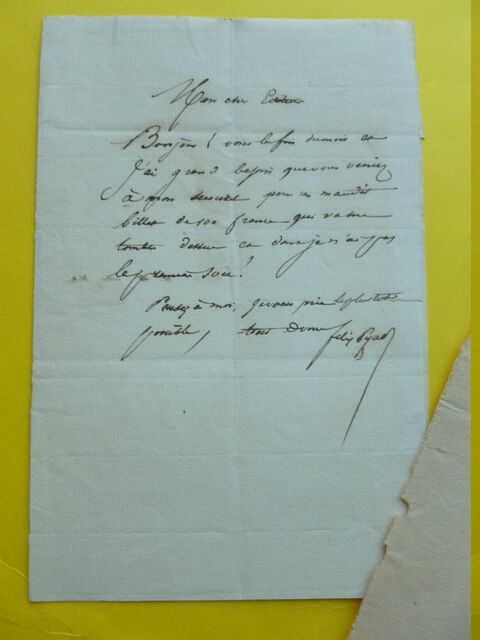 Mon cher Editeur
Bonjour! voici la fin du mois et
J'ai grand besoin que vous veniez
à mon secours pour un maudit
billet de 500 francs qui va me
tomber dessus et dont je n'ai pas
le premier sou!
Pensez à moi, je vous prie le plustot
possible, tout à vous felix Pyat